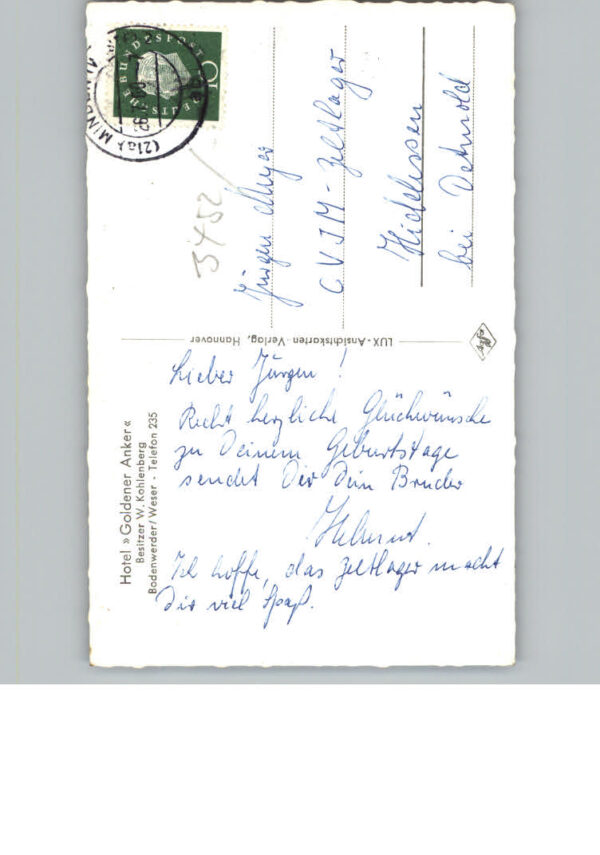 Hotel »Goldener Anker«
Besitzer W. Kohlenberg
Bodenwerder/Weser - Telefon 235
Lieber Jürgen!
Recht herzliche Glückwünsche
zu Deinem Geburtstage
sendet Dir Dein Bruder
Helmut.
Ich hoffe, das Zeltlager macht
Dir viel Spaß.
LUX-Ansichtskarten-Verlag, Hannover
DEUTSCHE BUNDESPOST
10
(21a) MINDEN
3452
Jürgen Meyer
CVJM-Zeltlager
Hiddessen
bei Detmold